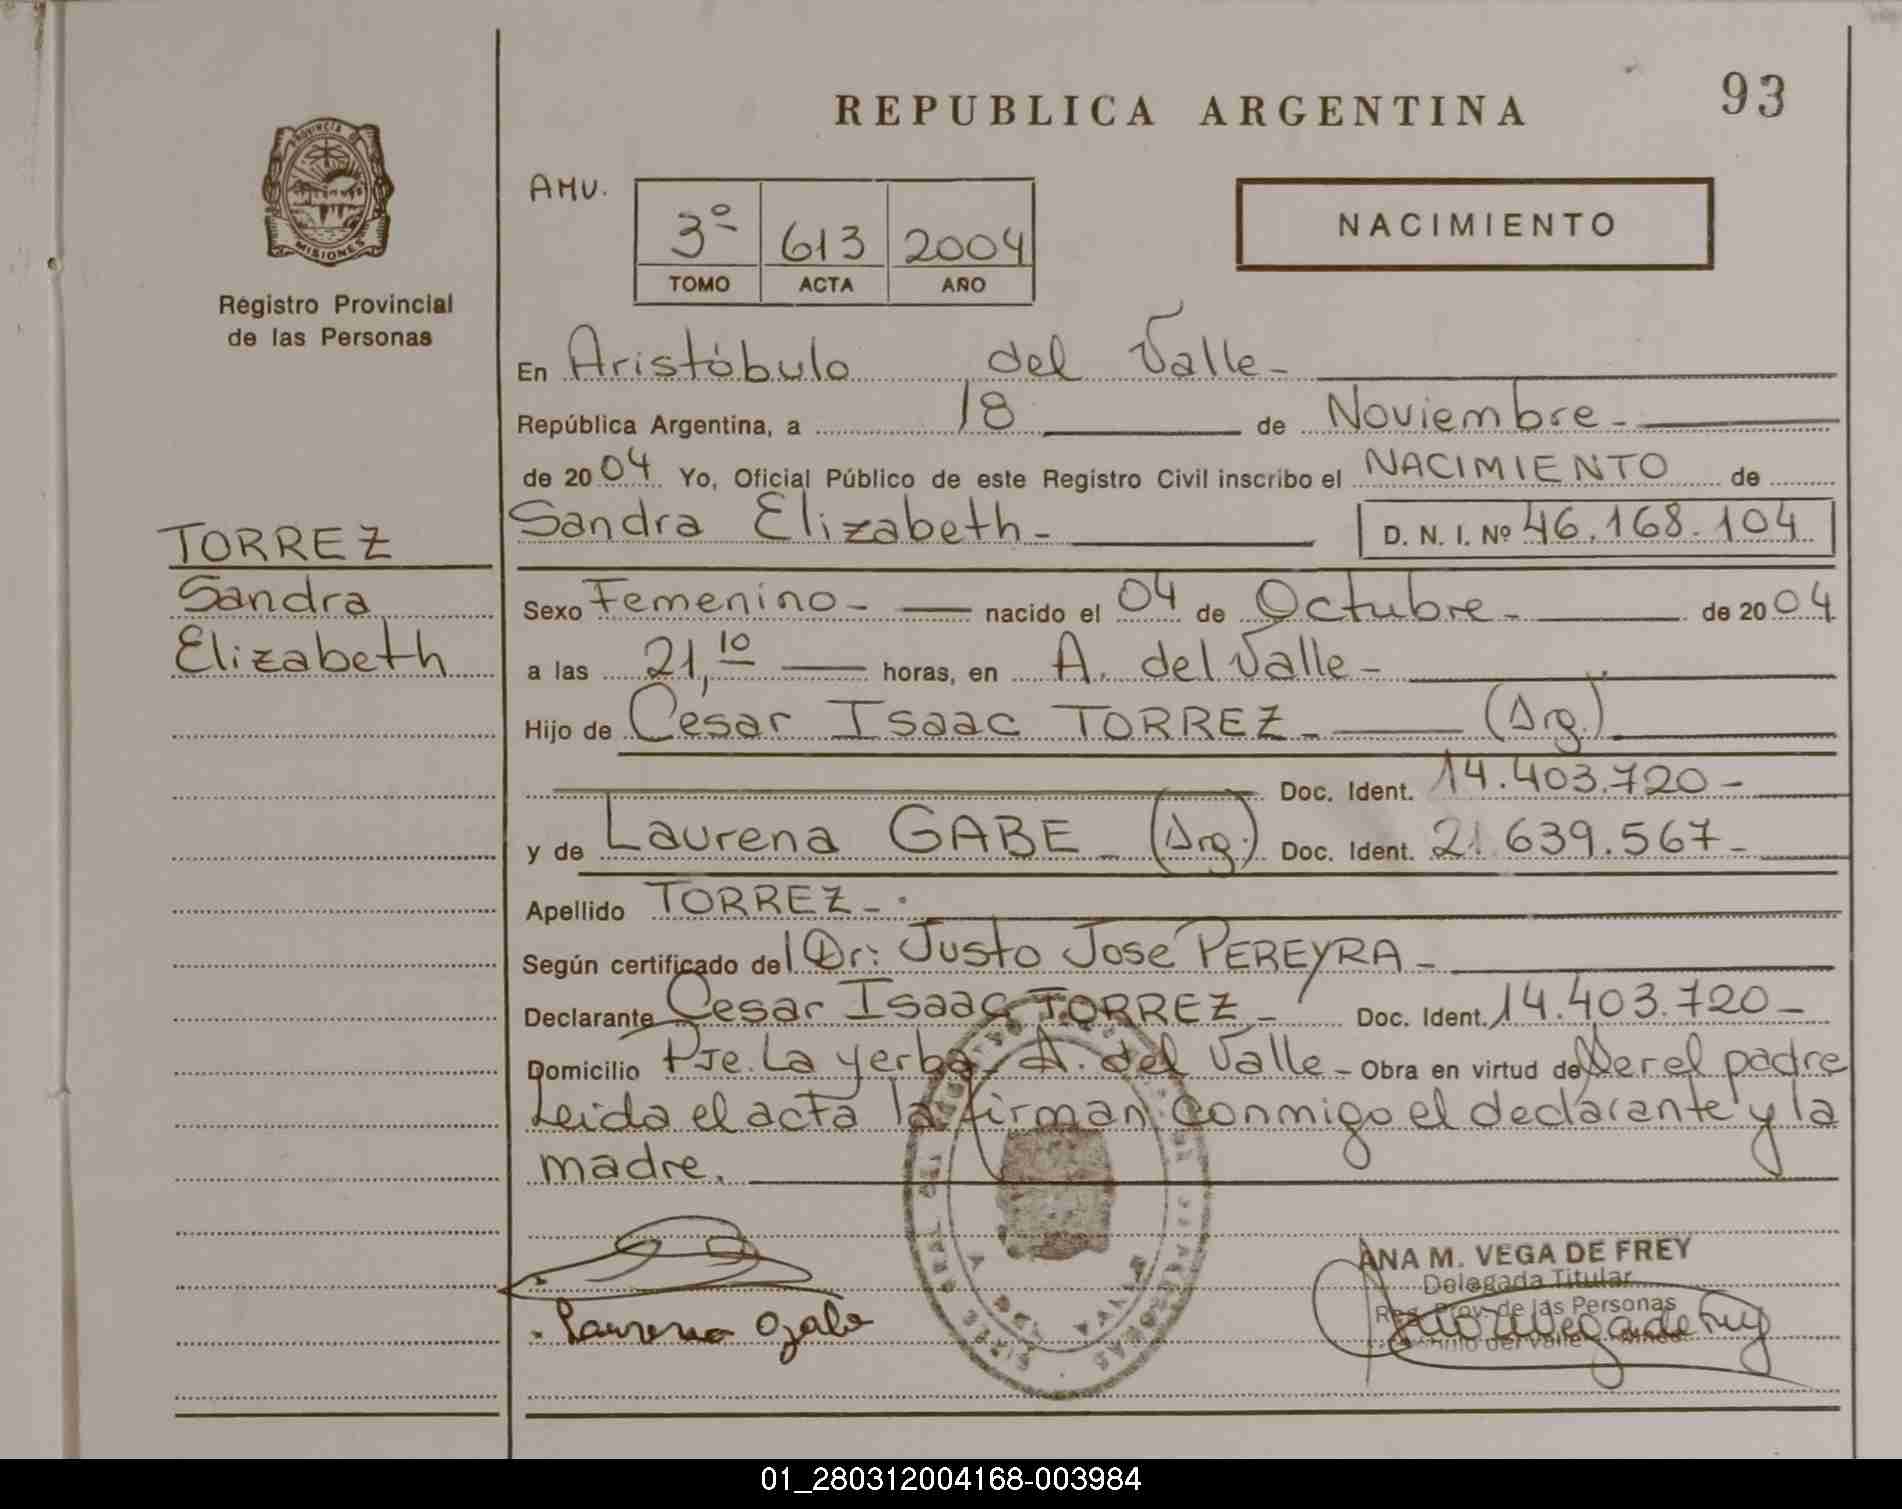 REPUBLICA ARGENTINA
93
PROVINCIA DE
MISIONES
Registro Provincial
de las Personas
AMU.
3º 613 2004
TOMO ACTA AÑO
NACIMIENTO
En Aristóbulo del Valle-
República Argentina, a 18 de Noviembre-
de 2004 Yo, Oficial Público de este Registro Civil inscribo el NACIMIENTO de
Sandra Elizabeth- D. N. I. Nº 46.168.104
TORREZ
Sandra
Elizabeth
Sexo Femenino- nacido el 04 de Octubre- de 2004
a las 21,10 horas, en A. del Valle-
Hijo de Cesar Isaac TORREZ- (Arg.)
Doc. Ident. 14.403.720-
y de Laurena GABE- (Arg.) Doc. Ident. 21.639.567-
Apellido TORREZ-.
Según certificado del Dr: Justo Jose PEREYRA-
Declarante Cesar Isaac TORREZ- Doc. Ident. 14.403.720-
Domicilio Pje. La yerba- A. del Valle- Obra en virtud de Ser el padre
Leida el acta la firman conmigo el declarante y la
madre.
ANA M. VEGA DE FREY
Delegada Titular
Reg. Prov. de las Personas
del Valle
01_280312004168-003984